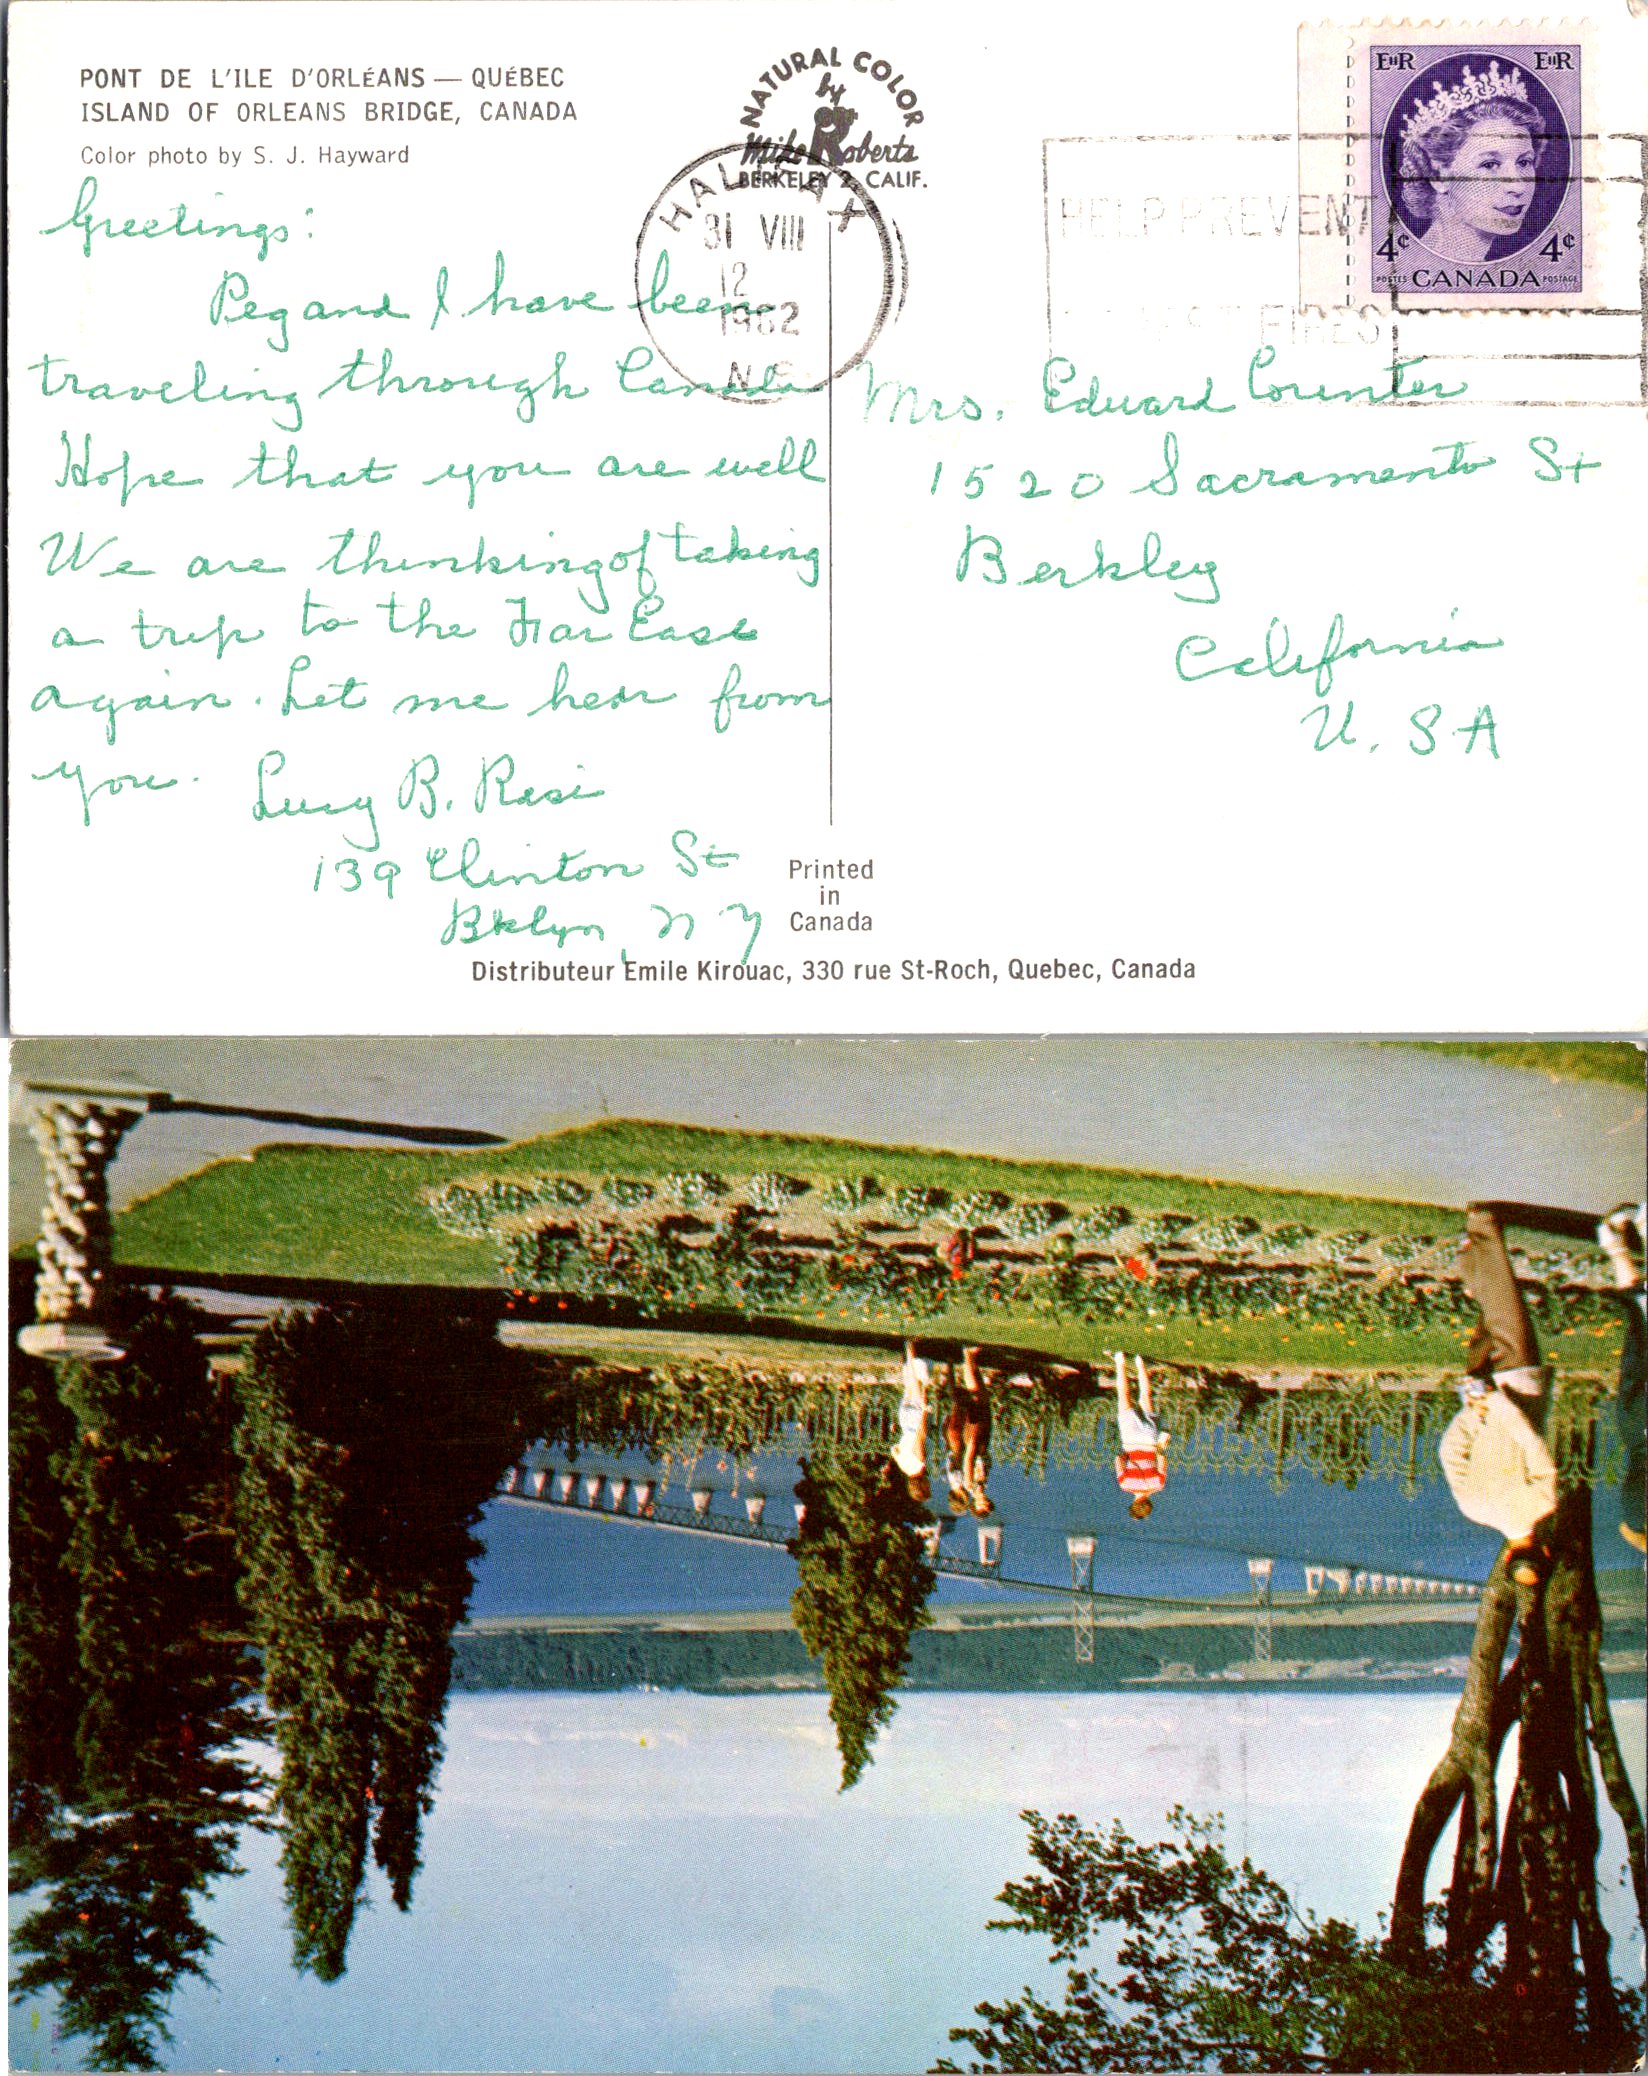 PONT DE L'ILE D'ORLéANS — QUéBEC
ISLAND OF ORLEANS BRIDGE, CANADA
Color photo by S. J. Hayward
NATURAL COLOR
by
Mike Roberts
BERKELEY 2, CALIF.
HALIFAX
31 VIII
12
1962
N.S.
HELP PREVENT
FOREST FIRES
EIIR EIIR
4¢ 4¢
POSTES CANADA POSTAGE
Greetings:
Peg and I have been
traveling through Canada
Hope that you are well
We are thinking of taking
a trip to the Far East
again. Let me hear from
you.
Lucy B. Rasi
139 Clinton St
Bklyn, N Y
Mrs. Edward Counter
1520 Sacramento St
Berkley
California
U. S A
Printed
in
Canada
Distributeur Emile Kirouac, 330 rue St-Roch, Quebec, Canada